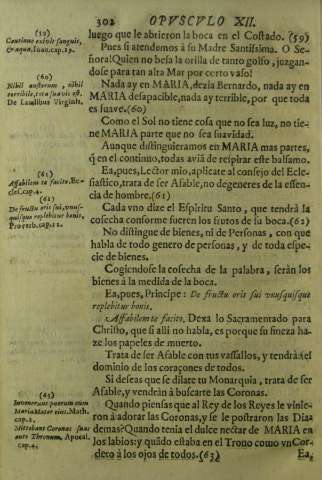 302 OPVSCVLO XII.
(59)
Continuo exivit sanguis,
& aqua, Ioan. cap. 19.
(60)
Nihil austerum, nihil
terribile, tota suavis est.
De Laudibus Virginis.
(61)
Affabilem te facito. Ec-
cles. cap. 4.
(62)
De fructu oris sui, vnus-
quisque replebitur bonis,
Proverb. cap. 12.
(63)
Invenerunt puerum cum
Maria Mater eius. Math.
cap. 2.
Mittebant Coronas suas
ante Thronum, Apocal.
cap. 4.
luego que le abrieron la boca en el Costado. (59)
Pues si atendemos à su Madre Santissima. O Se-
ñora! Quien no besa la orilla de tanto golfo, juzgan-
dose para tan alta Mar por corto vaso!
Nada ay en MARIA, dezia Bernardo, nada ay en
MARIA desapacible, nada ay terrible, por que toda
es suave. (60)
Como el Sol no tiene cosa que no sea luz, no tie-
ne MARIA parte que no sea suavidad.
Aunque distinguieramos en MARIA mas partes,
q̃ en el continuo, todas aviã de respirar este balsamo.
Ea, pues, Lector mio, aplicate al consejo del Ecle-
siastico, trata de ser Afable, no degeneres de la essen-
cia de hombre. (61)
Cada vno dize el Espiritu Santo, que tendrà la
cosecha conforme fueren los frutos de su boca. (62)
No distingue de bienes, ni de Personas, con que
habla de todo genero de personas, y de toda espe-
cie de bienes.
Cogiendose la cosecha de la palabra, seràn los
bienes à la medida de la boca.
Ea, pues, Principe: De fructu oris sui vnusquisque
replebitur bonis.
Affabilem te facito, Dexa lo Sacramentado para
Christo, que si alli no habla, es porque su fineza ha-
ze los papeles de muerto.
Trata de ser Afable con tus vassallos, y tendràs el
dominio de los coraçones de todos.
Si deseas que se dilate tu Monarquia, trata de ser
Afable, y vendràn à buscarte las Coronas.
Quando piensas que al Rey de los Reyes le vinie-
ron à adorar las Coronas, y se le postraron las Dia
demas? Quando tenia el dulce nectar de MARIA en
los labios: y quãdo estaba en el Trono como vn Cor-
dero à los ojos de todos. (63)
Ea,